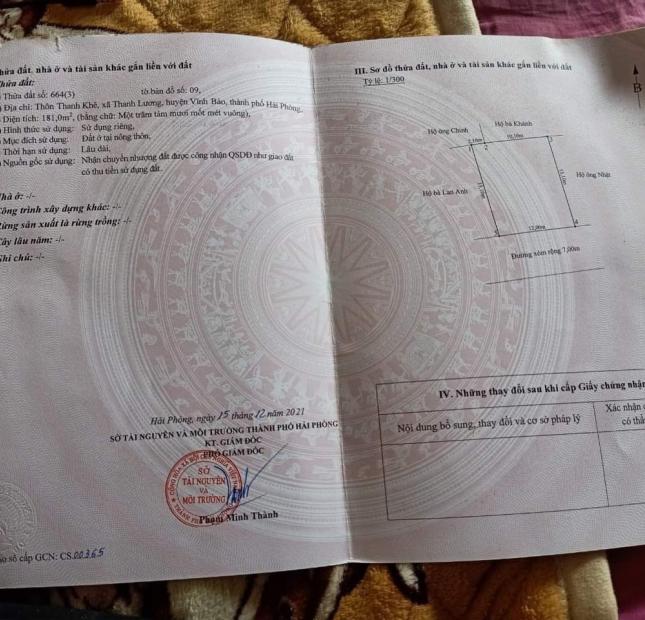 hửa đất, nhà ở và tài sản khác gắn liền với đất
hửa đất:
Thửa đất số: 664(3) tờ bản đồ số: 09,
Địa chỉ: Thôn Thanh Khê, xã Thanh Lương, huyện Vĩnh Bảo, thành phố Hải Phòng,
Diện tích: 181,0m², (bằng chữ: Một trăm tám mươi mốt mét vuông),
Hình thức sử dụng: Sử dụng riêng,
Mục đích sử dụng: Đất ở tại nông thôn,
Thời hạn sử dụng: Lâu dài,
Nguồn gốc sử dụng: Nhận chuyển nhượng đất được công nhận QSDĐ như giao đất
có thu tiền sử dụng đất.
hà ở: -/-
ông trình xây dựng khác: -/-
ừng sản xuất là rừng trồng: -/-
ây lâu năm: -/-
hi chú: -/-
Hải Phòng, ngày 15 tháng 12 năm 2021
SỞ TÀI NGUYÊN VÀ MÔI TRƯỜNG THÀNH PHỐ HẢI PHÒNG
KT. GIÁM ĐỐC
PHÓ GIÁM ĐỐC
SỞ
TÀI NGUYÊN
VÀ
MÔI TRƯỜNG
Phạm Minh Thành
số cấp GCN: CS.00365
III. Sơ đồ thửa đất, nhà ở và tài sản khác gắn liền với đất
Tỷ lệ: 1/300
B
Hộ bà Khánh
Hộ ông Chinh
10,10m
Hộ ông Nhật
Hộ bà Lan Anh
12,00m
Đường xóm rộng 7,00m
IV. Những thay đổi sau khi cấp Giấy chứng nhận
Nội dung bổ sung, thay đổi và cơ sở pháp lý
Xác nhận
có thẩ